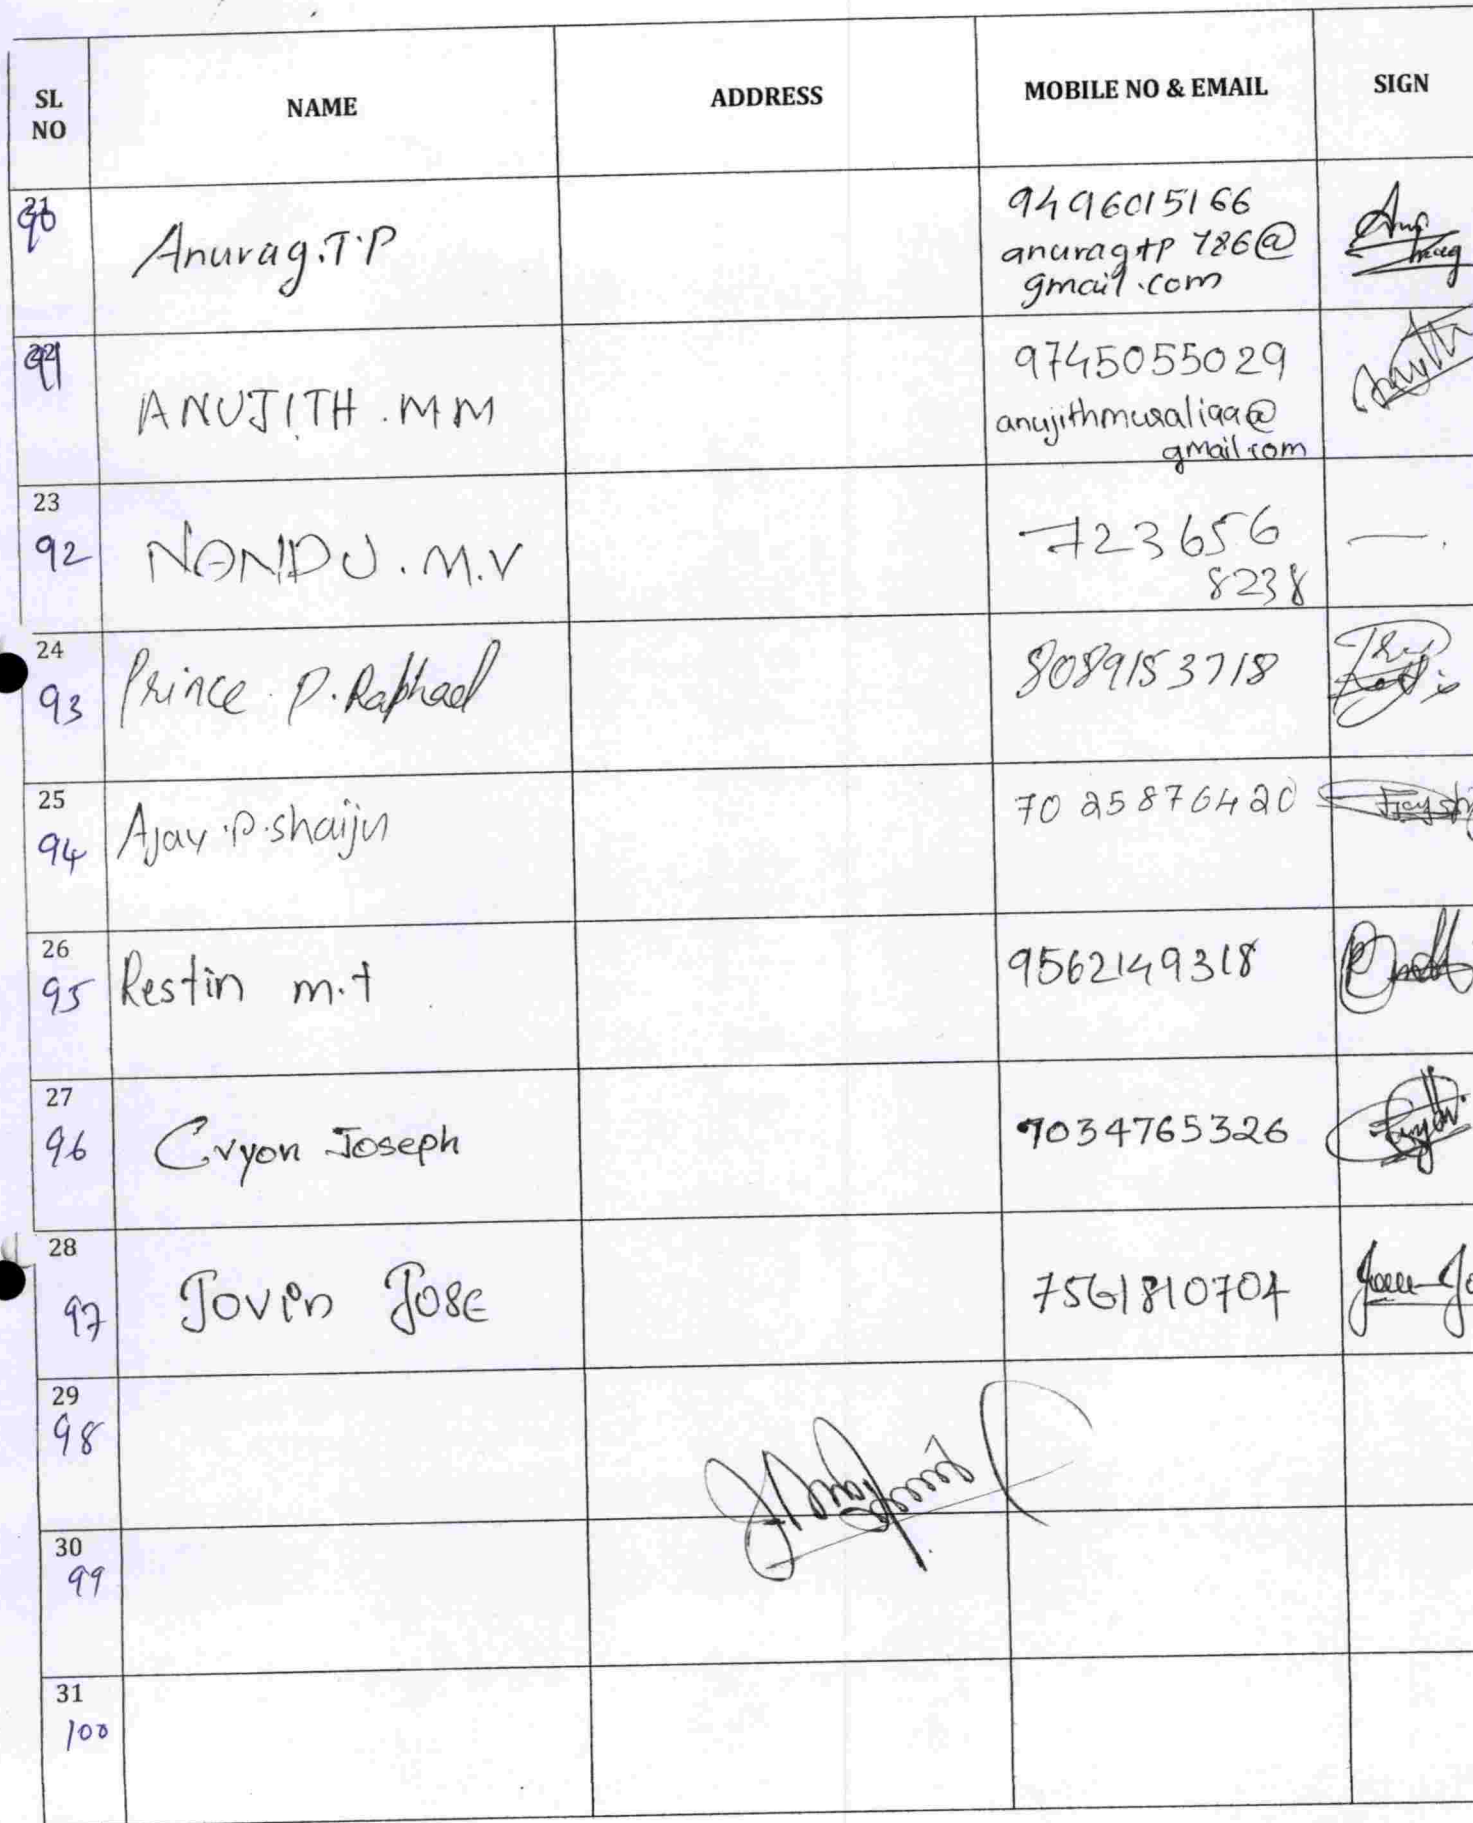 SL NO
NAME
ADDRESS
MOBILE NO & EMAIL
SIGN
21
90
Anurag.T.P
9496015166
anuragtp786@
gmail.com
22
91
ANUJITH.MM
9745055029
anujithmusaliaa@
gmail.com
23
92
NANDU.M.V
723656
8238
24
93
Prince P.Raphael
8089153718
25
94
Ajay.P.Shaiju
7025876420
26
95
Restin m.t
9562149318
27
96
Cryon Joseph
7034765326
28
97
Jovin Jose
7561810704
29
98
30
99
31
100